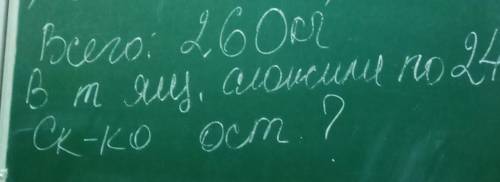 Всего: 260 кг
В m ящ. сложили по 24
Ск-ко ост.?